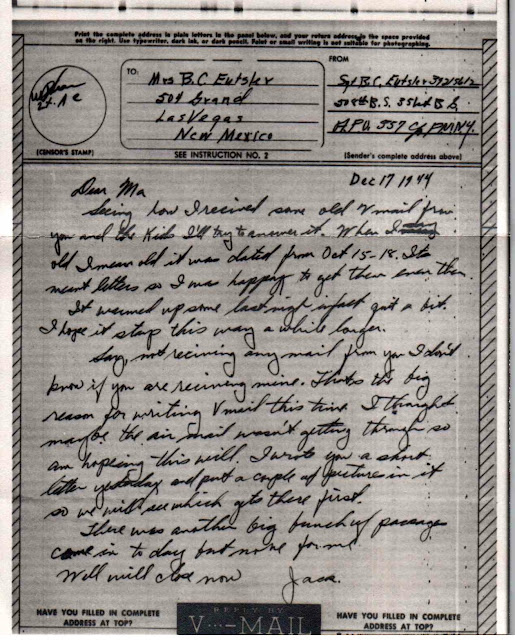 Print the complete address in plain letters in the panel below, and your return address in the space provided
on the right. Use typewriter, dark ink, or dark pencil. Faint or small writing is not suitable for photographing.
TO:
Mrs B.C. Eutsler
504 Grand
Las Vegas
New Mexico
FROM
Sgt B.C. Eutsler
B.S. B.G.
A.P.O. 557 PM NY.
(CENSOR'S STAMP)
SEE INSTRUCTION NO. 2
(Sender's complete address above)
Dec 17 1944
Dear Ma
Seeing how I recived some old V mail from
you and the Kids I'll try to answer it. When I
old I mean old it was dated from Oct 15-18. Its
meant letters so I was happy to get them even then.
It warmed up some last nigh infact quit a bit.
I hope it stap this way a while longer.
Say, not reciving any mail from you I don't
know if you are reciving mine. Thats the big
reason for writing V mail this time. I thought
maybe the air mail wasn't getting through so
am hopeing this will. I wrote you a short
letter yesterday and put a couple of picture in it
so we will see which gets there first.
There was another big bunch of packages
came in to day but none for me.
Well will close now Jack.
HAVE YOU FILLED IN COMPLETE
ADDRESS AT TOP?
REPLY BY
V···-MAIL
HAVE YOU FILLED IN COMPLETE
ADDRESS AT TOP?